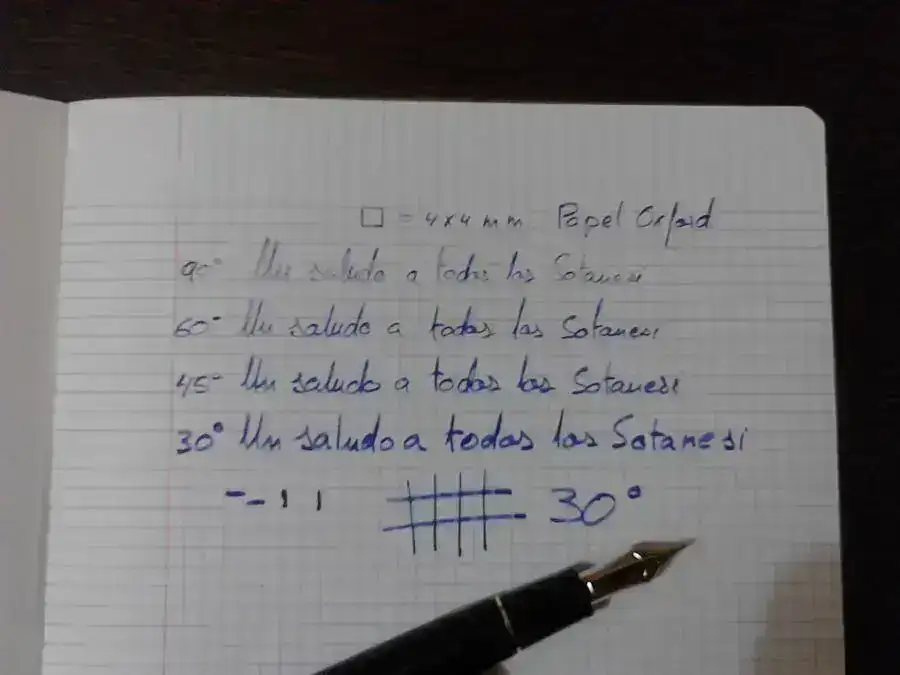 □ = 4x4 mm Papel Oxford
90° Un saludo a todos los Sotanesi
60° Un saludo a todos los Sotanesi
45° Un saludo a todos los Sotanesi
30° Un saludo a todos los Sotanesi
30°